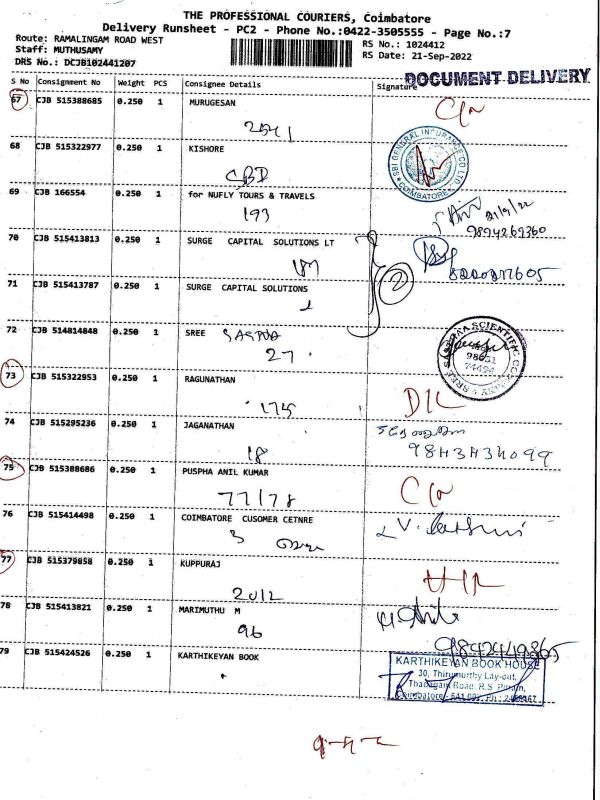 THE PROFESSIONAL COURIERS, Coimbatore
Delivery Runsheet - PC2 - Phone No.:0422-3505555 - Page No.:7
Route: RAMALINGAM ROAD WEST
RS No.: 1024412
Staff: MUTHUSAMY
RS Date: 21-Sep-2022
DRS No.: DCJB102441207
DOCUMENT DELIVERY
S No Consignment No Weight PCS Consignee Details Signature
67 CJB 515388685 0.250 1 MURUGESAN
2541
68 CJB 515322977 0.250 1 KISHORE
CBD
SBI GENERAL INSURANCE CO LTD
COIMBATORE
69 CJB 166554 0.250 1 for NUFLY TOURS & TRAVELS
193
21/9/22
9894269360
70 CJB 515413813 0.250 1 SURGE CAPITAL SOLUTIONS LT
2
71 CJB 515413787 0.250 1 SURGE CAPITAL SOLUTIONS
72 CJB 514814848 0.250 1 SREE
27
73 CJB 515322953 0.250 1 RAGUNATHAN
175
D/L
74 CJB 515295236 0.250 1 JAGANATHAN
18
9843434099
75 CJB 515388686 0.250 1 PUSPHA ANIL KUMAR
77/78
76 CJB 515414498 0.250 1 COIMBATORE CUSOMER CETNRE
3
77 CJB 515379858 0.250 1 KUPPURAJ
2012
78 CJB 515413821 0.250 1 MARIMUTHU M
96
79 CJB 515424526 0.250 1 KARTHIKEYAN BOOK
KARTHIKEYAN BOOK HOUSE
30, Thirumurthy Lay-out,
Thadagam Road, R.S. Puram,